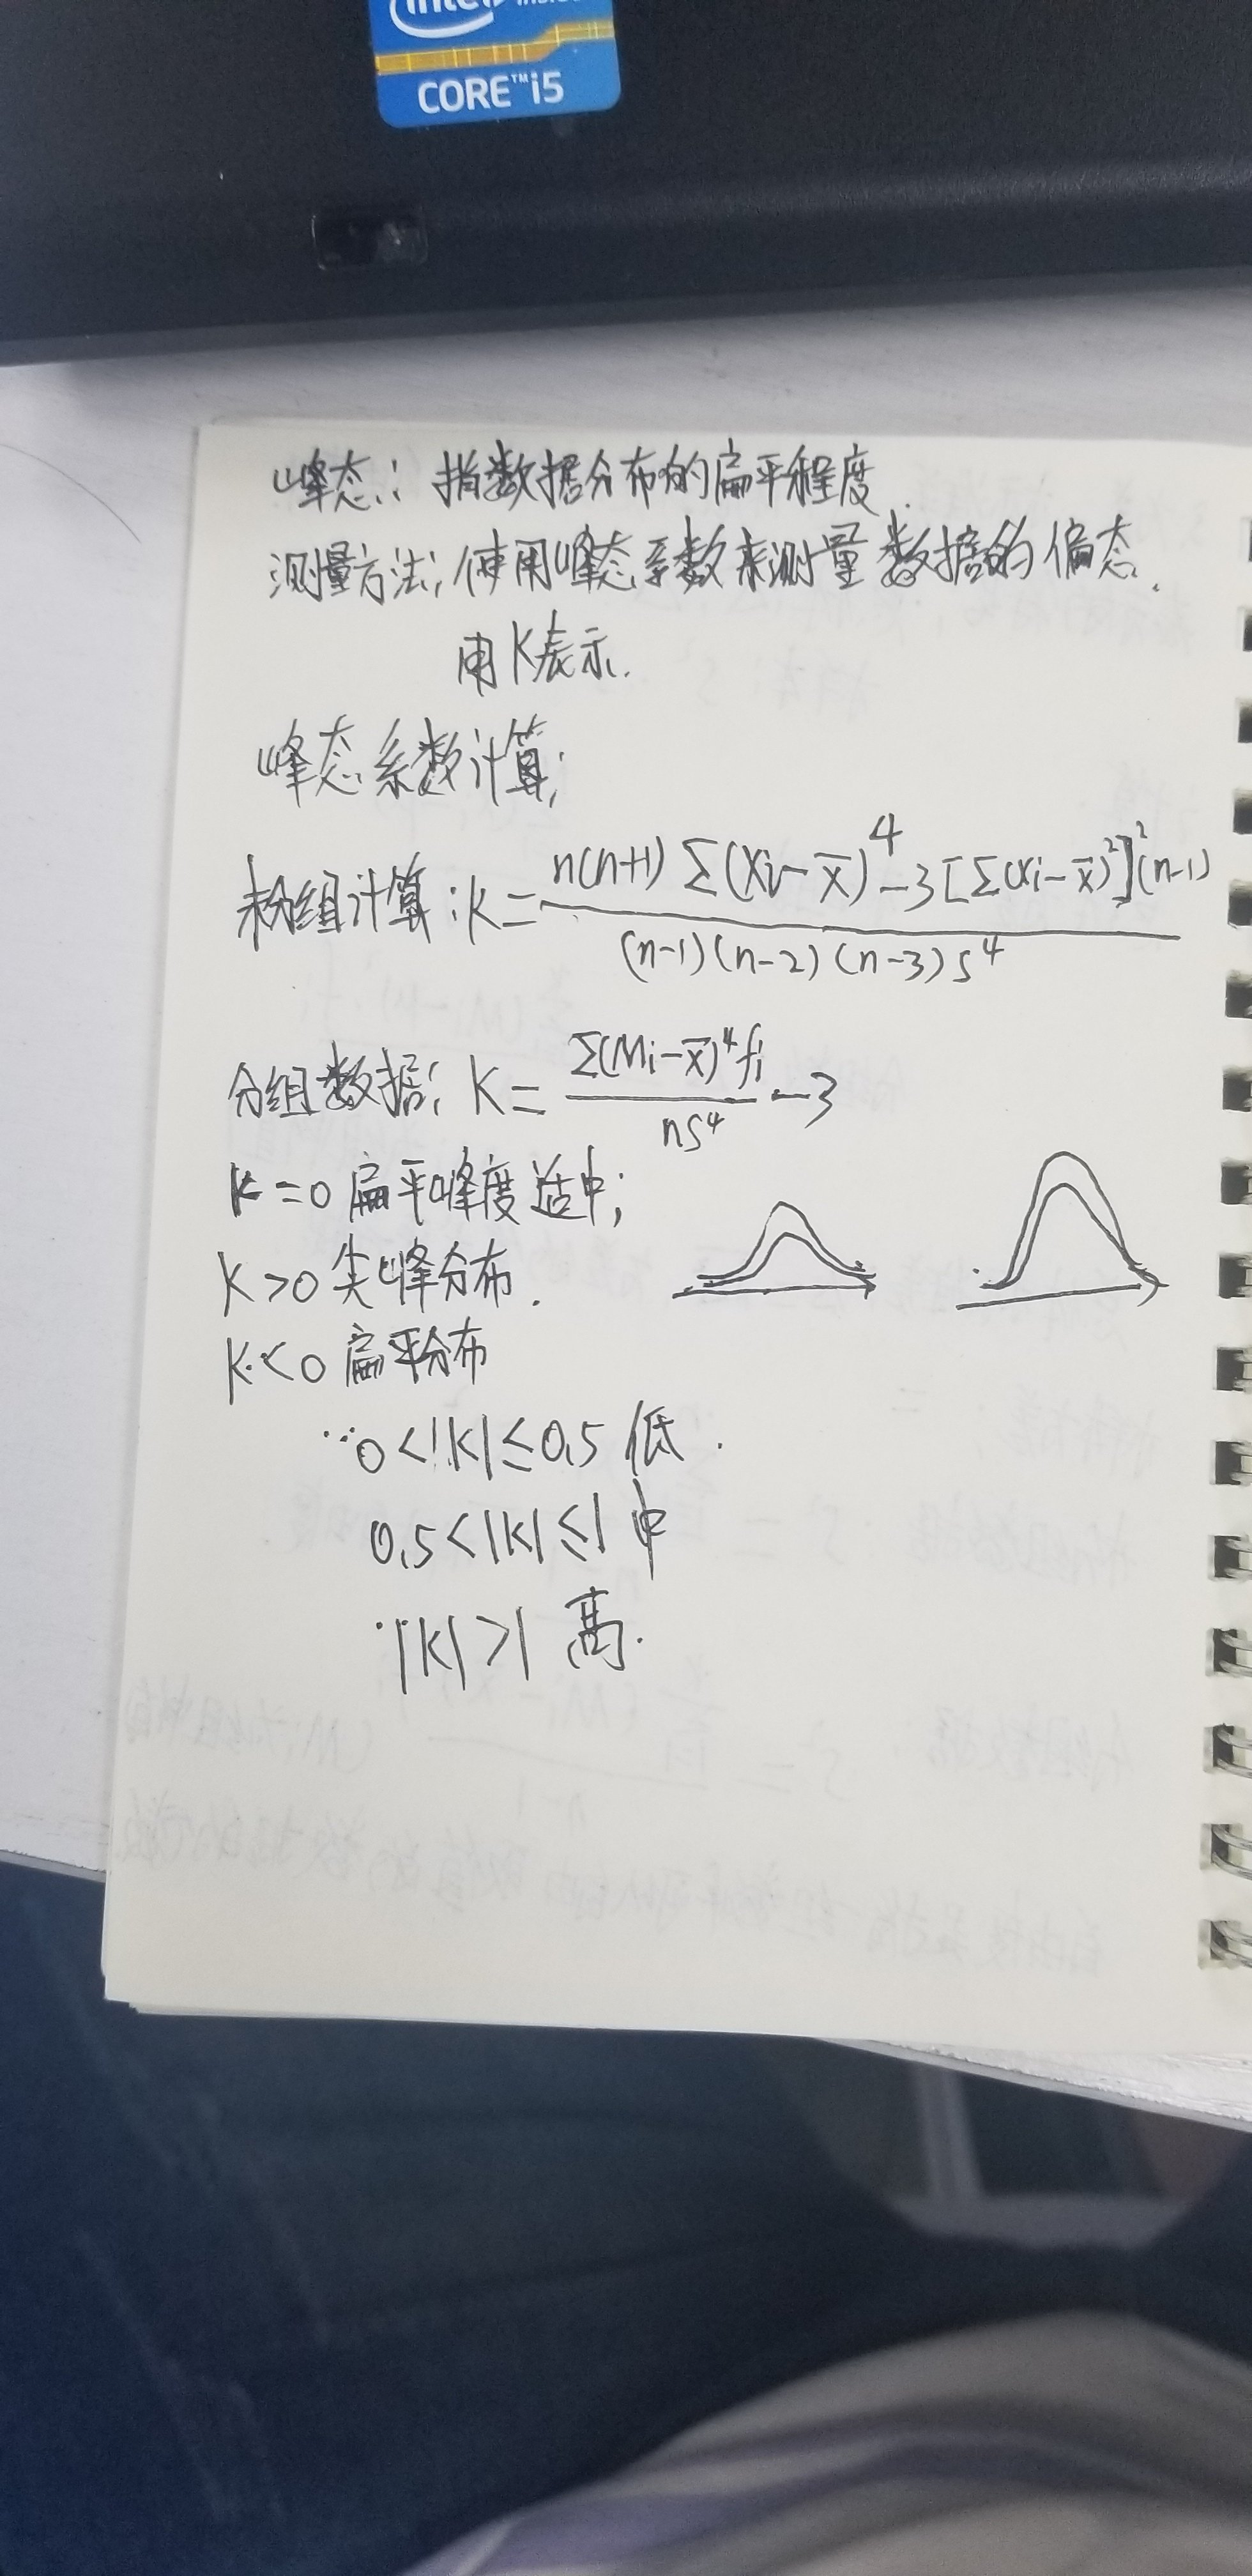 intel inside
CORE™ i5
峰态: 指数据分布的扁平程度.
测量方法; 使用峰态系数来测量数据的偏态.
用K表示.
峰态系数计算;
未分组计算: K = n(n+1) Σ(Xi-x̄)⁴ - 3[Σ(xi-x̄)²]²(n-1) / (n-1)(n-2)(n-3)S⁴
分组数据; K = Σ(Mi-x̄)⁴fi / nS⁴ - 3
K=0 扁平峰度适中;
K>0 尖峰分布.
K<0 扁平分布
0<|K|≤0.5 低.
0.5<|K|≤1 中
|K|>1 高.